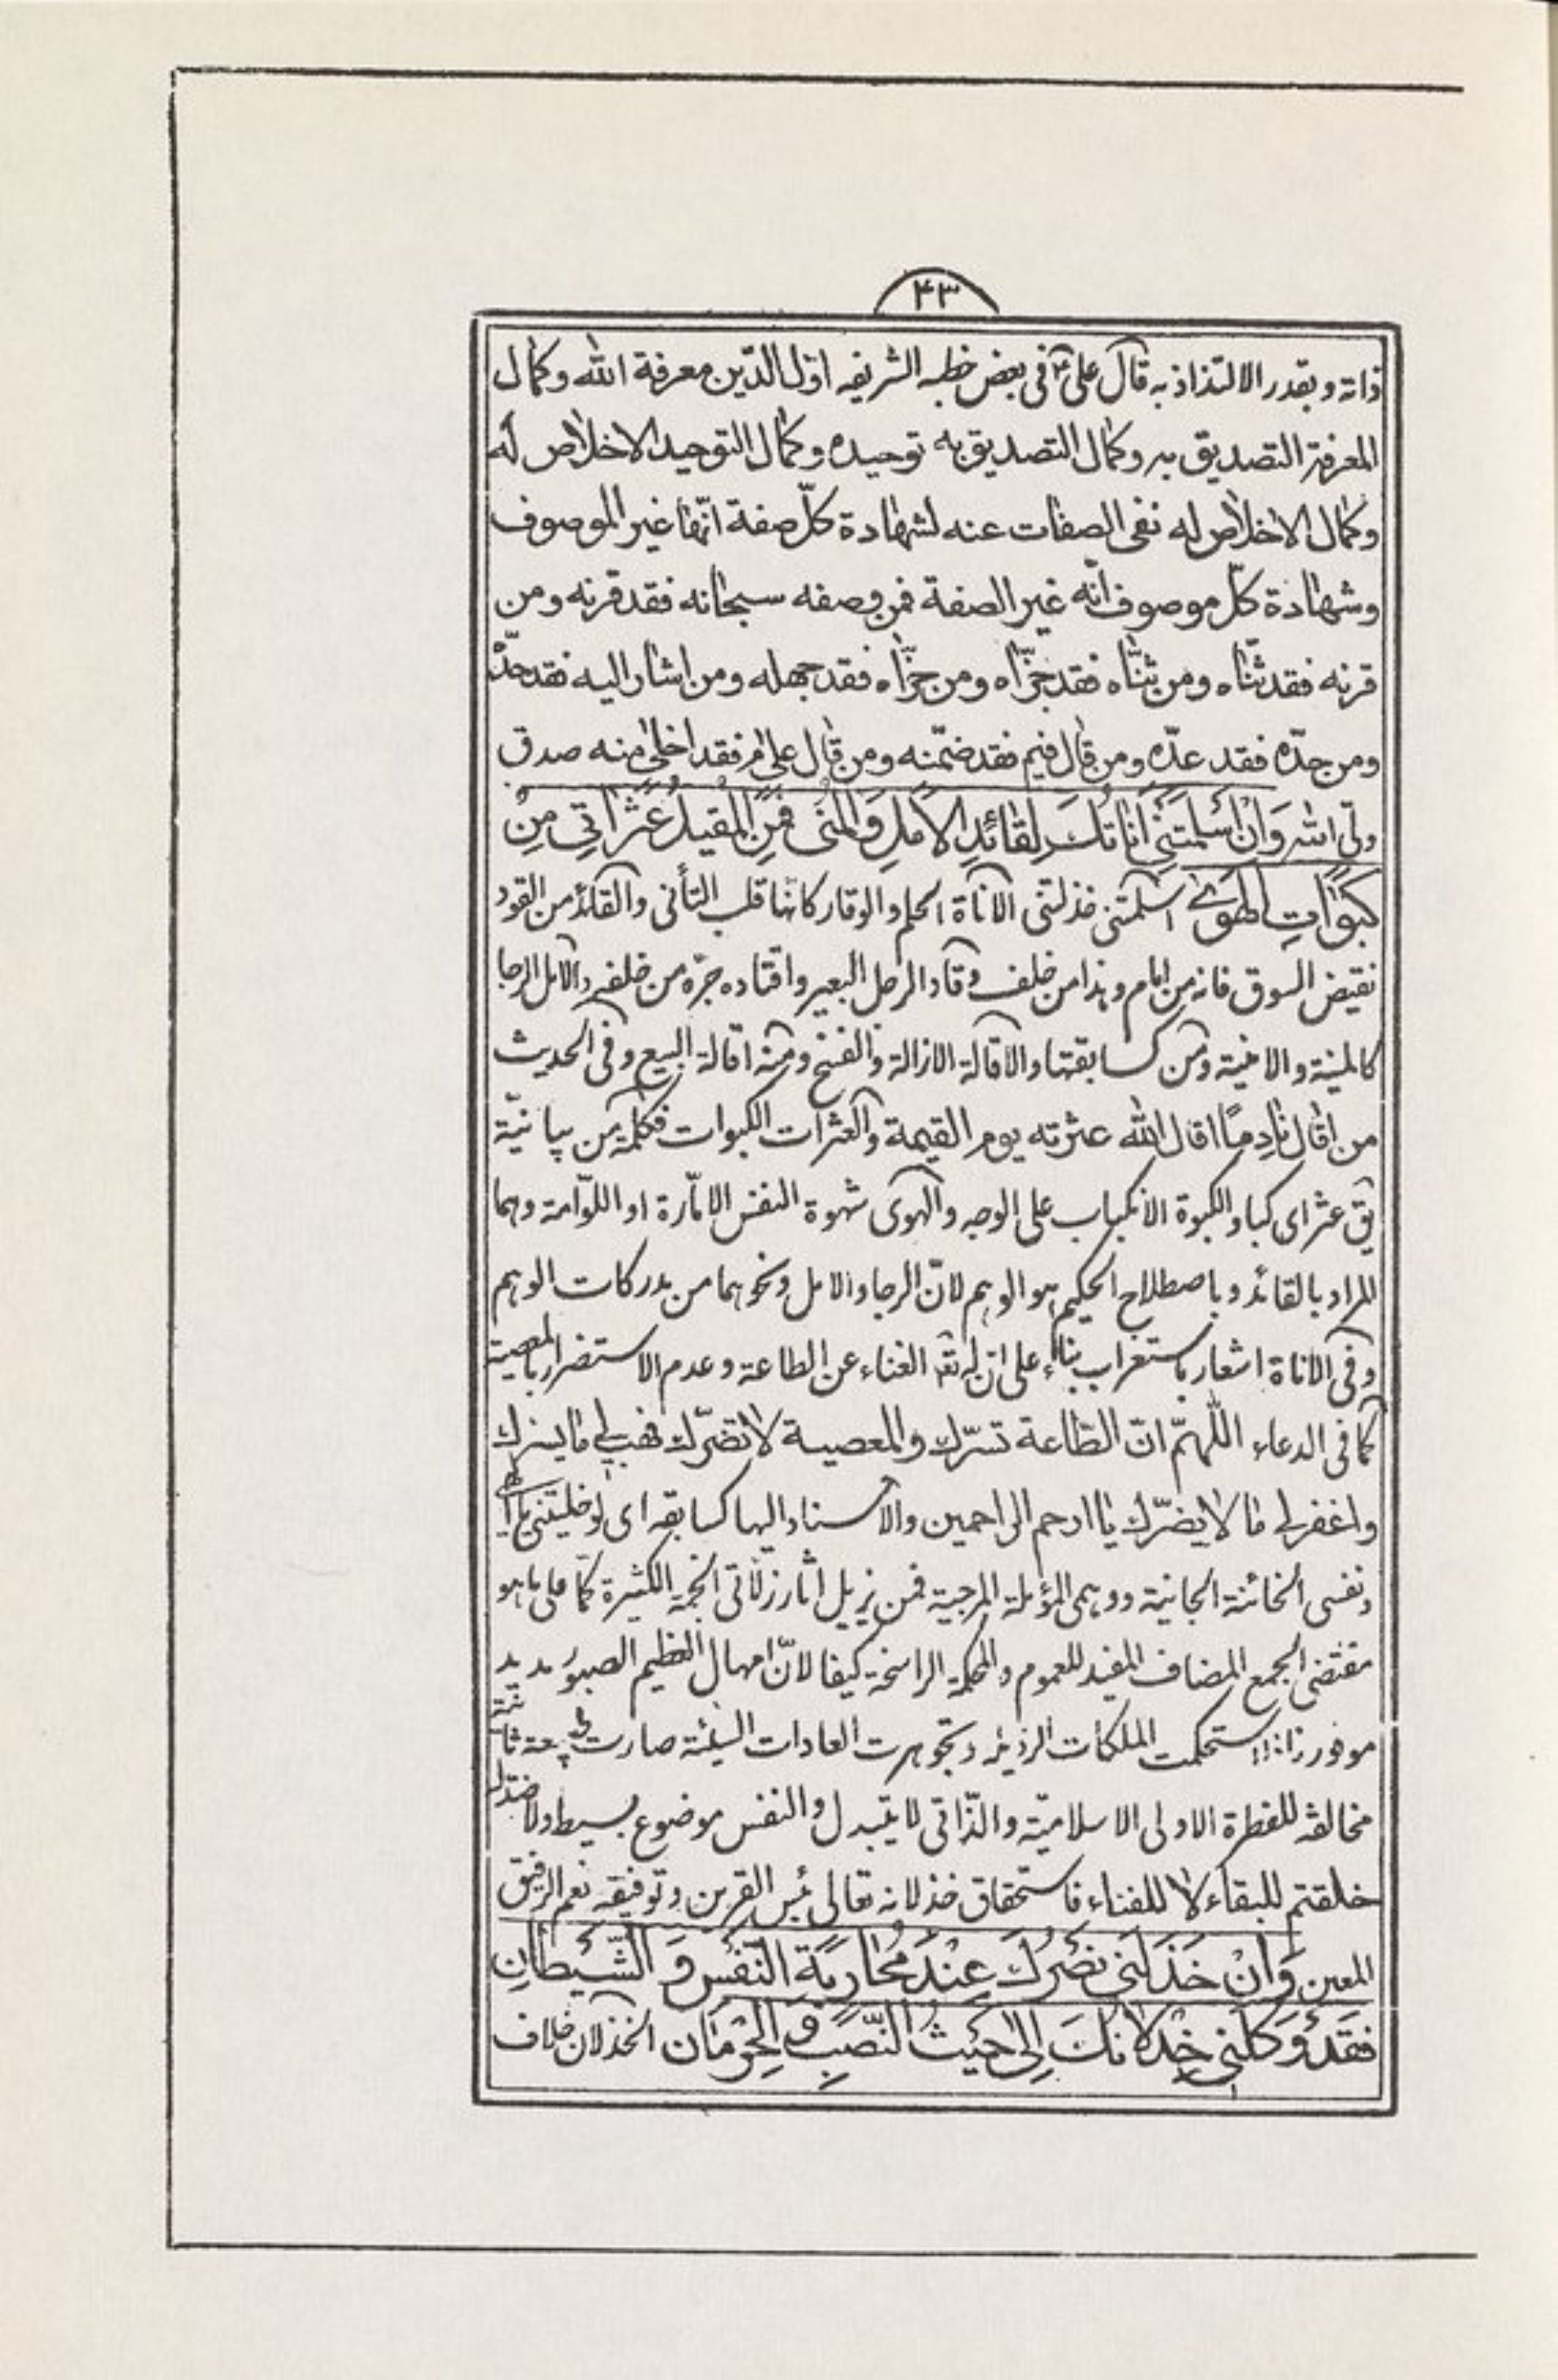 ۴۳
ذاته و بقدر الالتذاذ به قال علی ع فی بعض خطبه الشریفه اوّل الدّین معرفة الله وکمال
المعرفة التصدیق به وکمال التصدیق به توحیده وکمال التوحید الاخلاص له
وکمال الاخلاص له نفی الصفات عنه لشهادة کلّ صفة انّها غیر الموصوف
وشهادة کلّ موصوف انّه غیر الصفة فمن وصفه سبحانه فقد قرنه ومن
قرنه فقد ثنّاه ومن ثنّاه فقد جزّاه ومن جزّاه فقد جهله ومن اشار الیه فقد حدّه
ومن حدّه فقد عدّه ومن قال فیم فقد ضمّنه ومن قال علی م فقد اخلی منه صدق
ولیّ الله وَاِنْ اَسْلَمَتْنی اَناتُکَ لِقائِدِ الاَمَلِ وَالْمُنی فَمَنِ الْمُقیلُ عَثَراتی مِنْ
کَبَواتِ الْهَوی اسلمتنی خذلتنی الاناة الحلم والوقار کانها قلب التأنی والقائد من القود
نقیض السوق فانه من امام وهذا من خلف وقاد الرجل البعیر واقتاده جرّه من خلفه والامل الرجا
کالمنیة والامنیة ومن کسابقتها والاقالة الازالة والفسخ ومنه اقالة البیع وفی الحدیث
من اقال نادِمًا اقال الله عثرته یوم القیمة والعثرات الکبوات فکلمة من بیانیّة
یق عثر ای کبا والکبوة الانکباب علی الوجه والهوی شهوة النفس الامّارة او اللوّامة وهما
المراد بالقائد وباصطلاح الحکیم هو الوهم لانّ الرجا والامل ونحوهما من مدرکات الوهم
وفی الاناة اشعار باستغراب بناء علی ان له تع الغناء عن الطاعة وعدم الاستضرار بالمعصیة
کما فی الدعاء اللّهمّ انّ الطّاعة تسرّک والمعصیة لا تضرّک فهب لی ما یسرک
واغفر لی ما لا یضرّک یا ارحم الراحمین والاسناد الیها کسابقه ای لو خلیتنی یا الهی
ونفسی الخائنة الجانیة ووهمی المؤملة المرجیة فمن یزیل اثار زلاتی الجمة الکثیرة کمّا علی ما هو
مقتضی الجمع المضاف المفید للعموم والمحکمة الراسخة کیفا لانّ امهال العظیم الصبور مدید
موفور استحکمت الملکات الرذیلة وتجوهرت العادات السیئة صارت طبیعة ثانیة
مخالفة للفطرة الاولی الاسلامیّة والذّاتی لا یتبدل والنفس موضوع بسیط ولا ضدّ له
خلقتم للبقاء لا للفناء فاستحقاق خذلانه تعالی بئس القرین وتوفیقه نعم الرفیق
المعین وَاِنْ خَذَلَنی نَصْرُکَ عِنْدَ مُحارَبَةِ النَّفْسِ وَ الشَّیْطانِ
فَقَدْ وَکَلَنی خِذْلانُکَ اِلی حَیْثُ النَّصَبِ وَ الْحِرْمانِ الخذلان خلاف